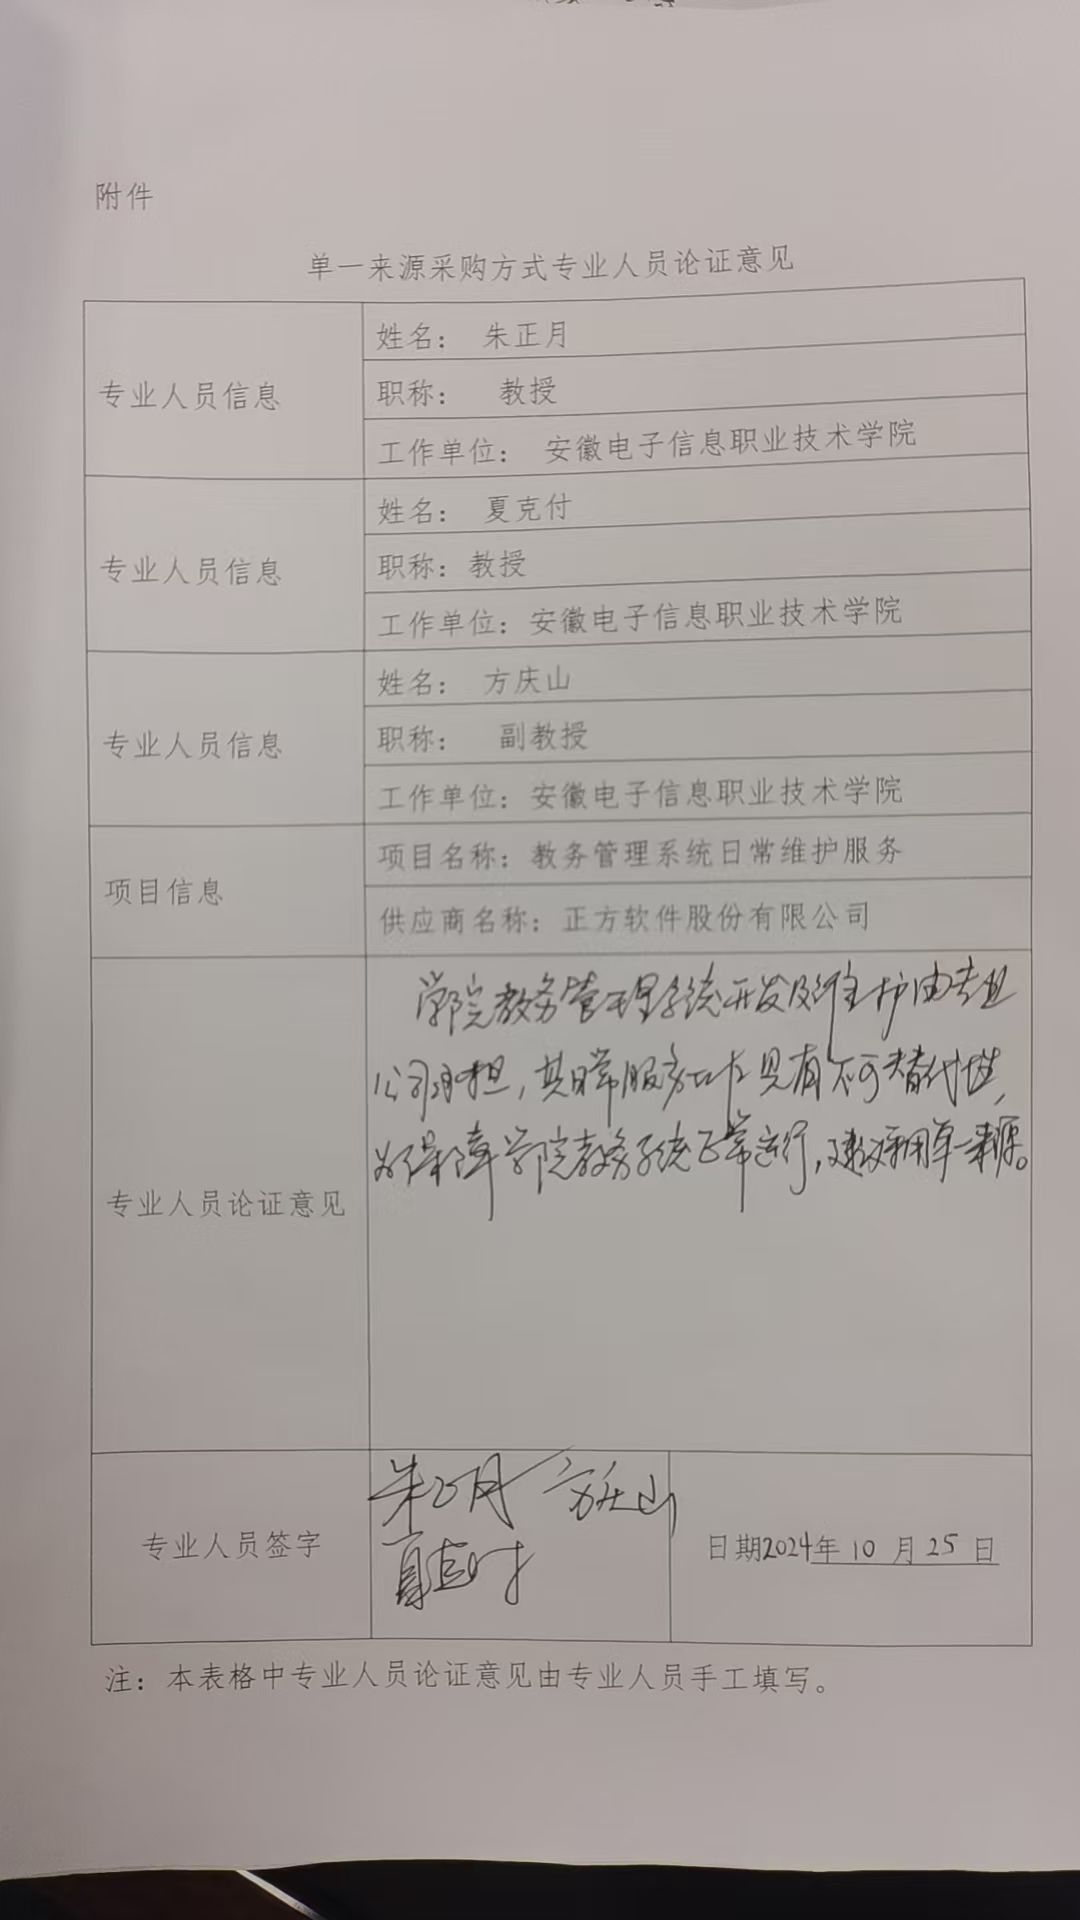 附件
单一来源采购方式专业人员论证意见
专业人员信息
姓名： 朱正月
职称： 教授
工作单位： 安徽电子信息职业技术学院
专业人员信息
姓名： 夏克付
职称：教授
工作单位：安徽电子信息职业技术学院
专业人员信息
姓名： 方庆山
职称： 副教授
工作单位：安徽电子信息职业技术学院
项目信息
项目名称：教务管理系统日常维护服务
供应商名称：正方软件股份有限公司
专业人员论证意见
学院教务管理系统开发及维护由专业
公司承担，其日常服务工作具有不可替代性，
为保障学院教务系统正常运行，建议采用单一来源。
专业人员签字
朱正月 方庆山
夏克付
日期2024年 10 月 25 日
注：本表格中专业人员论证意见由专业人员手工填写。